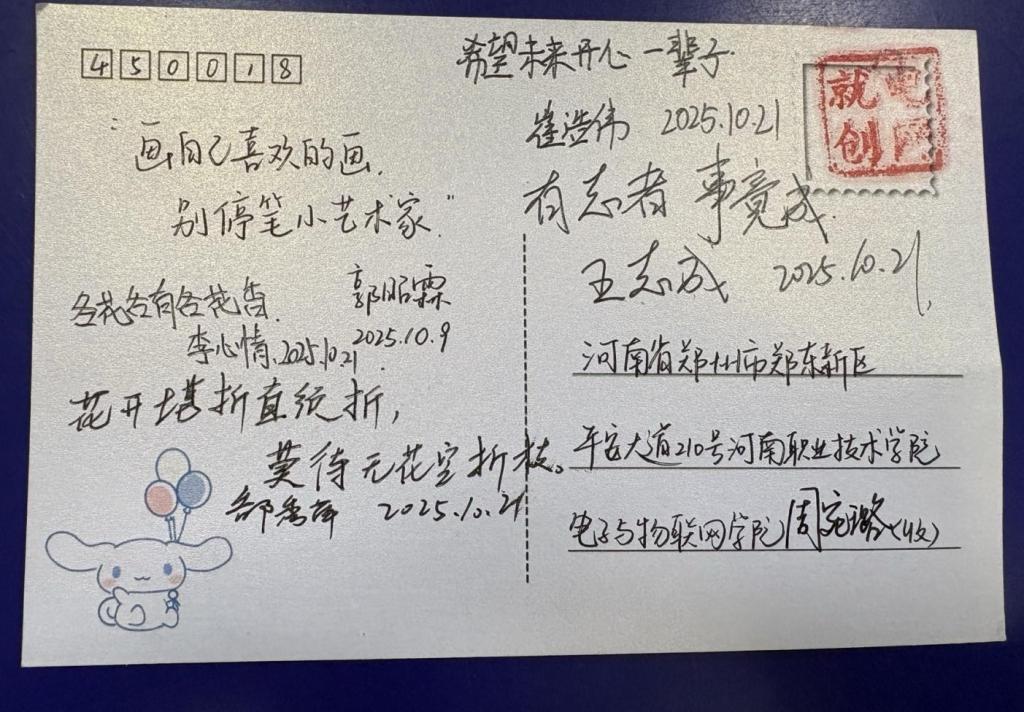 450018
"画自己喜欢的画,
别停笔小艺术家."
郭昭霖
2025.10.9
各花各有各花香.
李心情.2025.10.21
花开堪折直须折,
莫待无花空折枝。
2025.10.21
希望未来开心一辈子.
崔浩伟 2025.10.21
有志者事竟成.
王志成 2025.10.21
就创
电网
河南省郑州市郑东新区
平安大道210号河南职业技术学院
电子与物联网学院周宛璐(收)